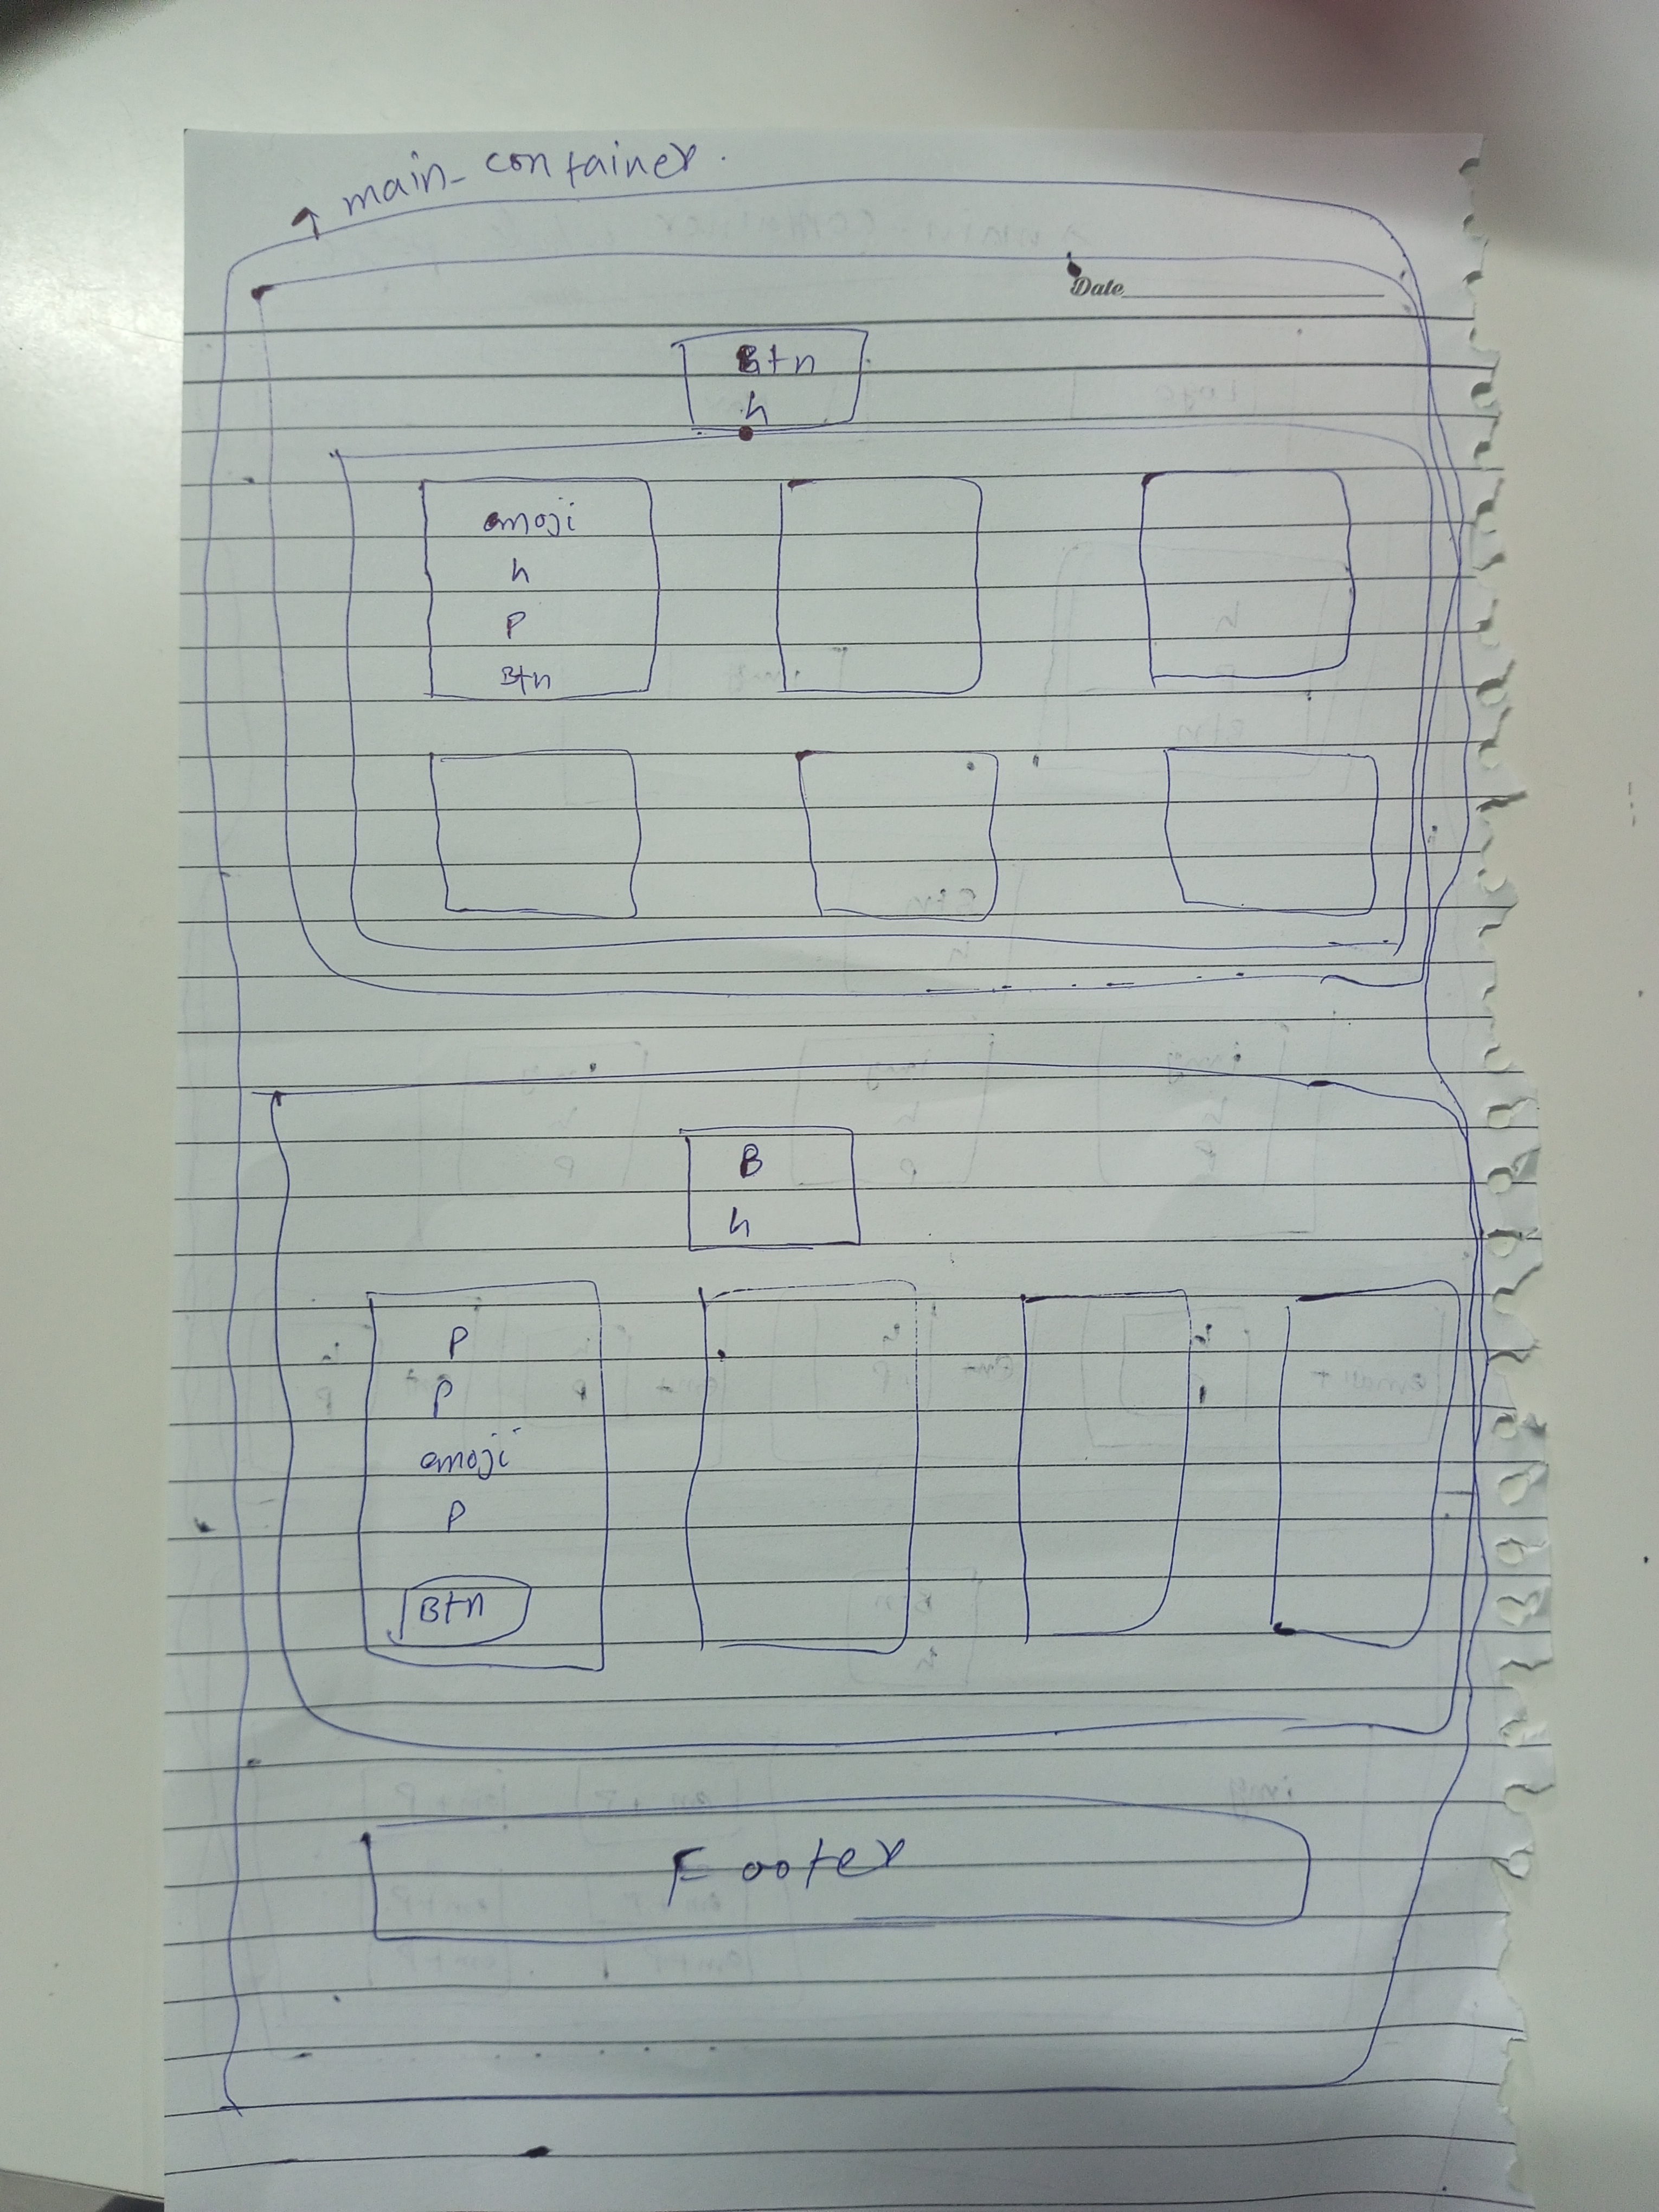 main-container.
Date
Btn
h
emoji
h
p
Btn
B
h
P
P
emoji
P
Btn
Footer